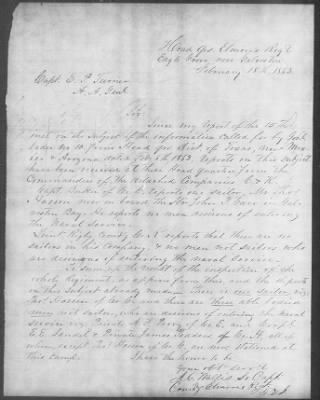 Head Qrs. Elmore's Regt
Eagle Grove, near Galveston
February 18th, 1863
Capt. E. P. Turner
A. A. Genl.
Sir
Since my report of the 15th
inst on the subject of the information called for by Genl
order no 10 from Head Qrs Dist. of Texas, New Mex-
ico & Arizona dated Feby 6th 1863, reports on this subject
have been received at these Head Quarters from the
Commanders of the detached Companies
Capt. of Co. reports one sailor,
now on board the Str John F. Carr in Gal-
veston Bay. He reports no men desirous of entering
the Naval service.
Lieut Rigby Comdg Co. A reports that there are no
sailors in his Company, & no men not sailors who
are desirous of entering the naval service.
To sum up the result of the inspection of the
whole Regiment, as appears from this, and the reports
on this subject already made, there is one Sailor, viz
of Co. and there are three able bodied
men not sailors, who are desirous of entering the Naval
service viz Private of Co. E, and
E. E. & Private James of Co. H, all of
whom, except of Co. are now stationed at
this camp. I have the honor to be
Your obt servt
L. C. Wallis Sr Capt
Comdg Elmore's Regt